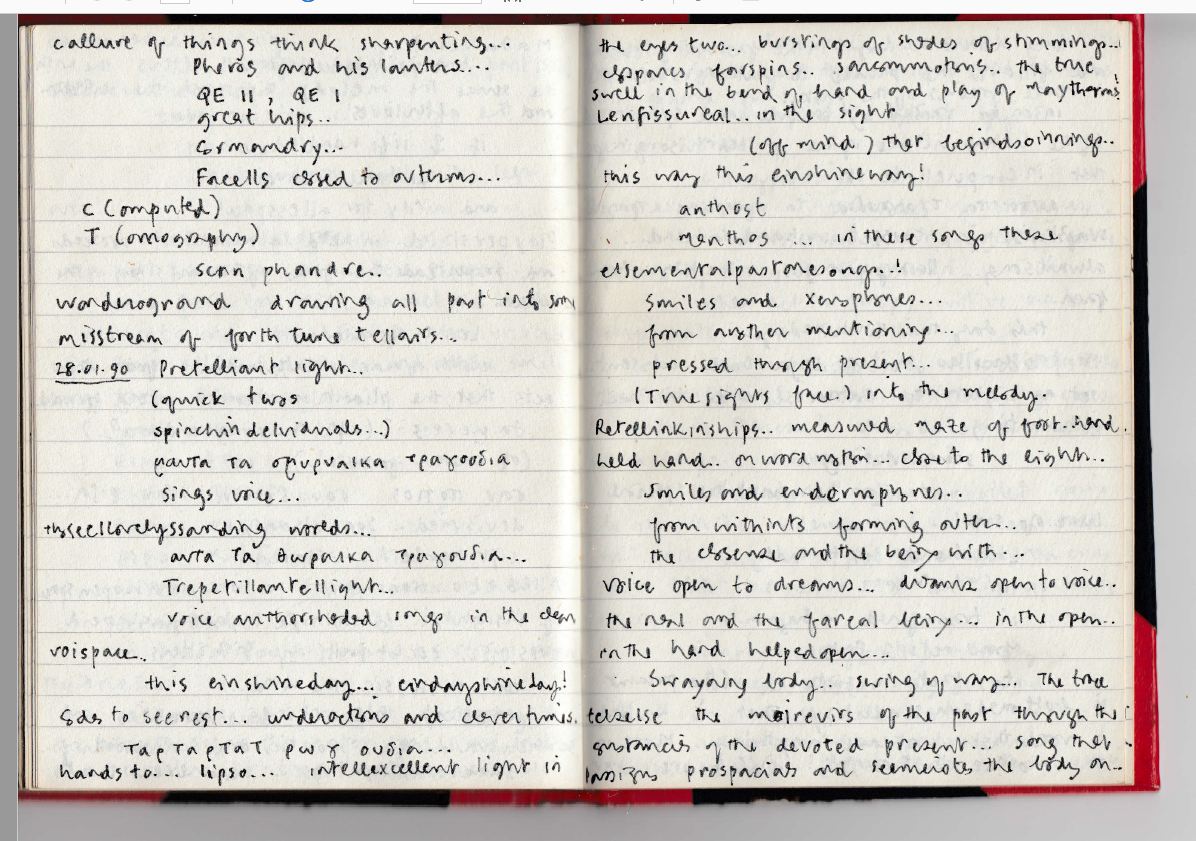 callure of things think sharpenting...
Pheros and his lanters...
QE II, QE I
great hips..
Ermandry...
Facells closed to outerms...
C (Computed)
T (omography)
scan phandre..
wonderoground drawing all past into som
misstream of forth tune tellairs...
28.01.90 Pretelliant light..
(quick twos
spinchindelviduals...)
μαντα τα σμυρναικα τραγουδια
sings voice...
thseellovelyssanding worlds...
αντα τα θωραικα τραγουδια...
Trepetillantellight...
voice authorsheded songs in the clean
voispace..
this einshineday... eindayshineday!
Sdes to see rest... underactions and clevertimes.
ταρ ταρτατ ρωγ ουδια...
hands to... lipso... intellexcellent light in
the eyes two... burstings of shades of stimmings...
farspins.. sarcommotions.. the true
swell in the bend of hand and play of maytherms!
Lenfissureal.. in the sight
(off mind) that begindsoinnings..
this way this einshineway!
anthost
menthos .... in these songs these
elsementalpastoresongs..!
Smiles and xenophones...
from another mentioning...
pressed through present...
(Time sights face) into the melody.
Retellinkinships.. measured maze of foot..hand
held hand.. onword motion... close to the eight..
Smiles and endermphones..
from withints forming outer...
the closense and the being with...
voice open to dreams... dreams open to voice..
the real and the fareal being... in the open..
in the hand helpedopen...
Swaying body.. swing of way... The trace
telselse the moirevirs of the past through the
sustancies of the devoted present... song that
lassigns prospacials and seemeiotes the body on..